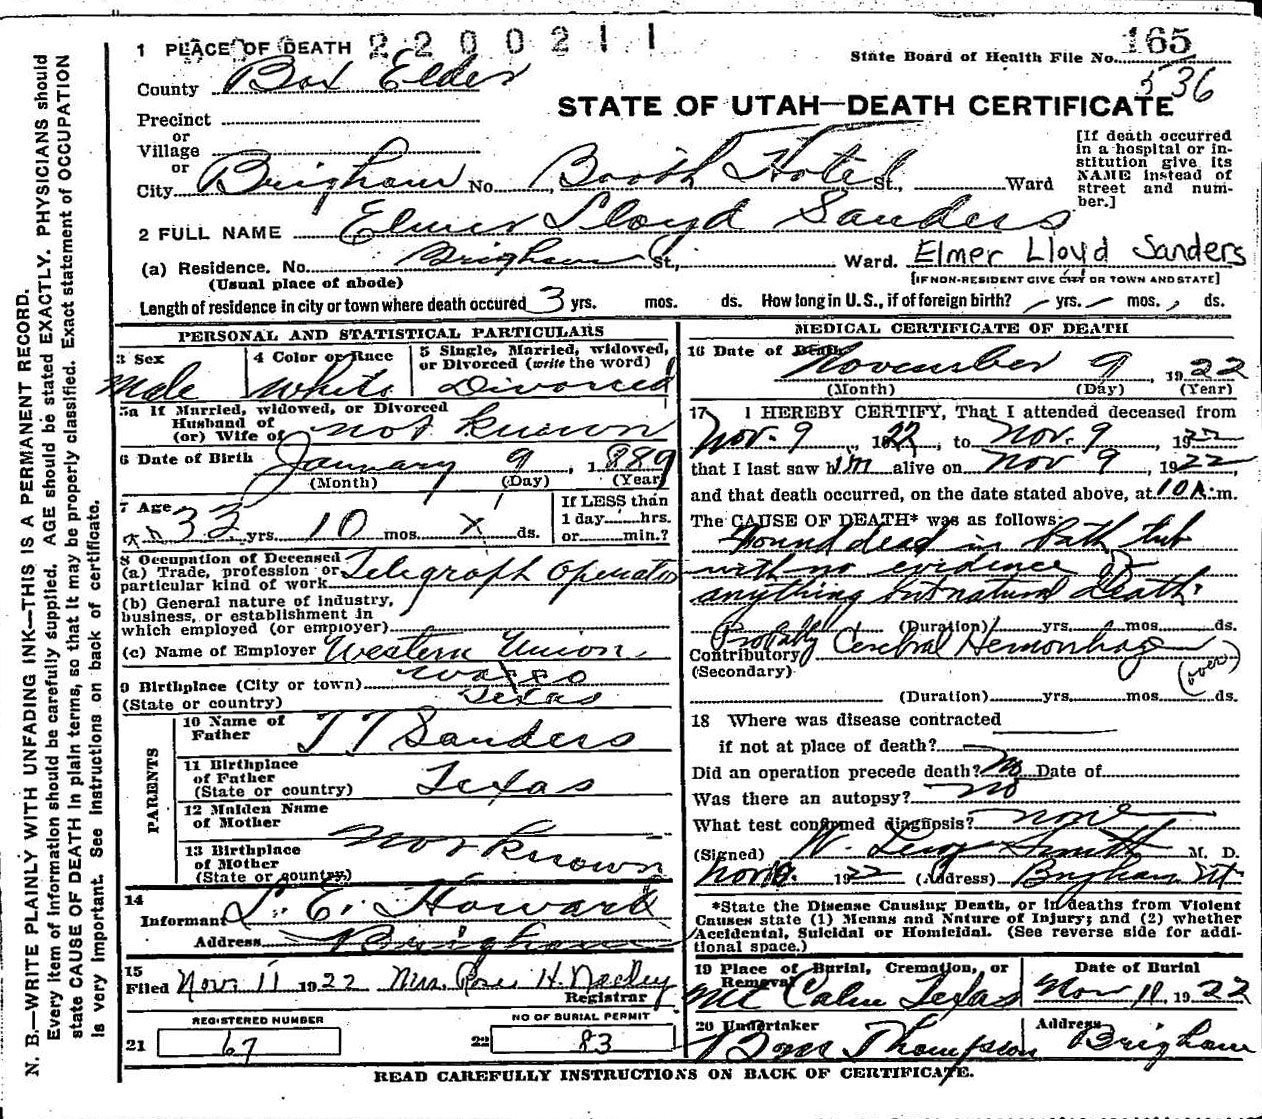 1 PLACE OF DEATH 2200211
State Board of Health File No. 165
536
County Box Elder
STATE OF UTAH—DEATH CERTIFICATE
Precinct
or
Village
or
City Brigham No. Booth Hotel St., Ward
[If death occurred in a hospital or in-
stitution give its NAME instead of street and num-
ber.]
2 FULL NAME Elmer Lloyd Sanders
(a) Residence. No. Brigham St., Ward. Elmer Lloyd Sanders
(Usual place of abode) [IF NON-RESIDENT GIVE CITY OR TOWN AND STATE]
Length of residence in city or town where death occured 3 yrs. mos. ds. How long in U. S., if of foreign birth? – yrs. – mos. ds.
PERSONAL AND STATISTICAL PARTICULARS
3 Sex
Male
4 Color or Race
White
5 Single, Married, widowed, or Divorced (write the word)
Divorced
5a If Married, widowed, or Divorced
Husband of
(or) Wife of not known
6 Date of Birth January 9, 1889
(Month) (Day) (Year)
7 Age 33 yrs. 10 mos. X ds.
If LESS than
1 day hrs.
or min.?
8 Occupation of Deceased
(a) Trade, profession or
particular kind of work Telegraph Operator
(b) General nature of industry,
business, or establishment in
which employed (or employer)
(c) Name of Employer Western Union
9 Birthplace (City or town)
(State or country) Texas
PARENTS
10 Name of
Father J T Sanders
11 Birthplace
of Father
(State or country) Texas
12 Maiden Name
of Mother
13 Birthplace
of Mother
(State or country) not known
14
Informant L. E. Howard
Address Brigham
15
Filed Nov 11 1922 Mrs. Rose H.
Registrar
REGISTERED NUMBER
21 67
NO OF BURIAL PERMIT
22 83
MEDICAL CERTIFICATE OF DEATH
16 Date of Death November 9 1922
(Month) (Day) (Year)
17 I HEREBY CERTIFY, That I attended deceased from
Nov. 9, 1922, to Nov. 9, 1922
that I last saw him alive on Nov 9, 1922,
and that death occurred, on the date stated above, at 10 A. m.
The CAUSE OF DEATH* was as follows:
Found dead in bath tub
with no evidence of
anything but natural death.
(Duration) yrs. mos. ds.
Probably Cerebral Hemorrhage
Contributory
(Secondary)
(over)
(Duration) yrs. mos. ds.
18 Where was disease contracted
if not at place of death?
Did an operation precede death? no Date of
Was there an autopsy? no
What test confirmed diagnosis? none
(Signed) W. Smith M. D.
Nov 1922 (Address) Brigham Ut
*State the Disease Causing Death, or in deaths from Violent
Causes state (1) Means and Nature of Injury; and (2) whether
Accidental, Suicidal or Homicidal. (See reverse side for addi-
tional space.)
19 Place of Burial, Cremation, or
Removal
Mc Texas
Date of Burial
Nov 11, 1922
20 Undertaker
Thompson
Address
Brigham
READ CAREFULLY INSTRUCTIONS ON BACK OF CERTIFICATE.
N. B.—WRITE PLAINLY WITH UNFADING INK—THIS IS A PERMANENT RECORD.
Every item of information should be carefully supplied. AGE should be stated EXACTLY. PHYSICIANS should
state CAUSE OF DEATH in plain terms, so that it may be properly classified. Exact statement of OCCUPATION
is very important. See instructions on back of certificate.